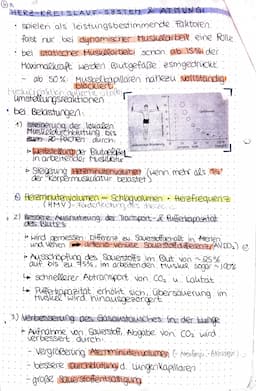 HERZ-KREISLAUF-SYSTEM & ATMUNG:
• spielen als leistungsbestimmende Faktoren
fast nur bei dynamischer Muskelarbeit eine Rolle
• bei statischer Muskelarbeit schon ab 15% der
Maximalkraft werden Blutgefäße eingedrückt
- ab 50% Muskelkapillaren nahezu vollständig
blockiert
Umstellungsreaktionen
bei Belastungen:
1) Steigerung der lokalen
Muskeldurchblutung bis
zum 20-fachen durch:
↳ Weitstellung der Blutgefäße
in arbeitender Muskulatur
↳ Steigerung Herzminutenvolumen (wenn mehr als
der Körpermuskulatur belastet)
Herzminutenvolumen = Schlagvolumen · Herzfrequenz
(HMV)
2) Bessere Ausnutzung der Transport- & Pufferkapazität
des Bluts
↳ Wird gemessen: Differenz zu Sauerstoffgehalt in Arterien
und Venen → arterio venöse Sauerstoffdifferenz (AVDO₂)
↳ Ausschöpfung des Sauerstoffs im Blut von ~25%
auf bis zu 75%, im arbeitenden Muskel sogar ~100%
↳ schnellerer Abtransport von CO₂ u. Laktat
↳ Pufferkapazität erhöht sich, Übersäuerung im
Muskel wird hinausgezögert
3) Verbesserung des Gasaustausches in der Lunge
• Aufnahme von Sauerstoff, Abgabe von CO₂ wird
verbessert durch:
- Vergrößerung Atemminutenvolumen
- bessere Durchblutung d. Lungenkapillaren
- große Sauerstoffsättigung